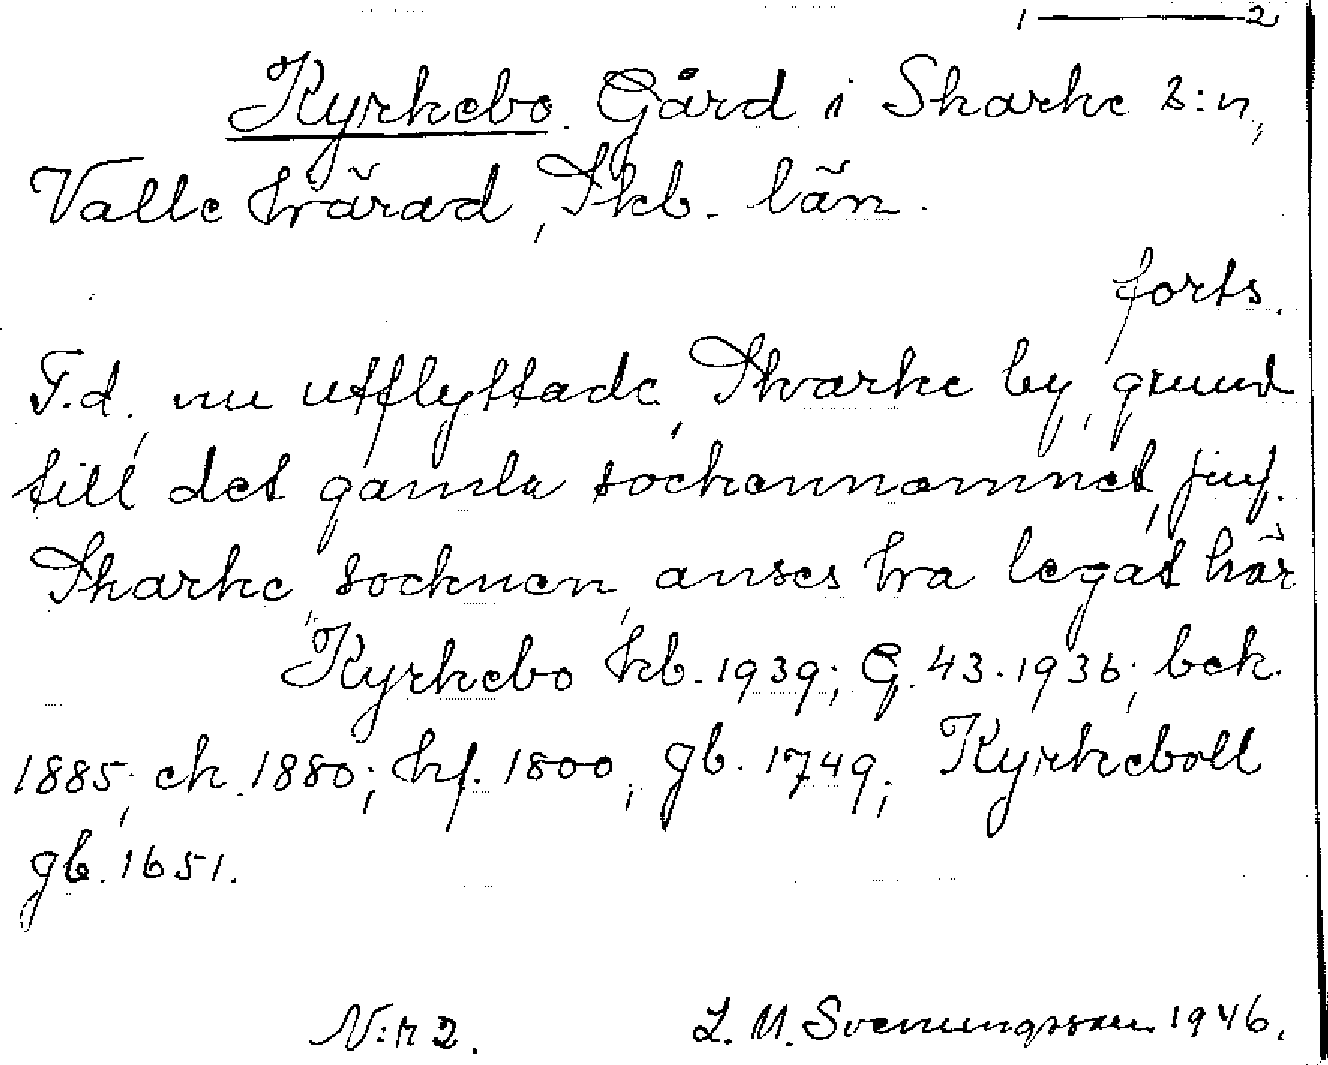 1 — 2
Kyrkebo. Gård i Skarke s:n,
Valle härad, Skb. län.
forts.
F.d., nu utflyttade, Skarke by, grund
till det gamla sockennamnet, jmf.
Skarke, socknen, anses ha legat här
Kyrkebo kb. 1939; G. 43. 1936; bek.
1885; ek. 1880; hf. 1800; gb. 1749; Kyrkeboll
gb. 1651.
N:r 2. L. M. Svenungsson 1946.